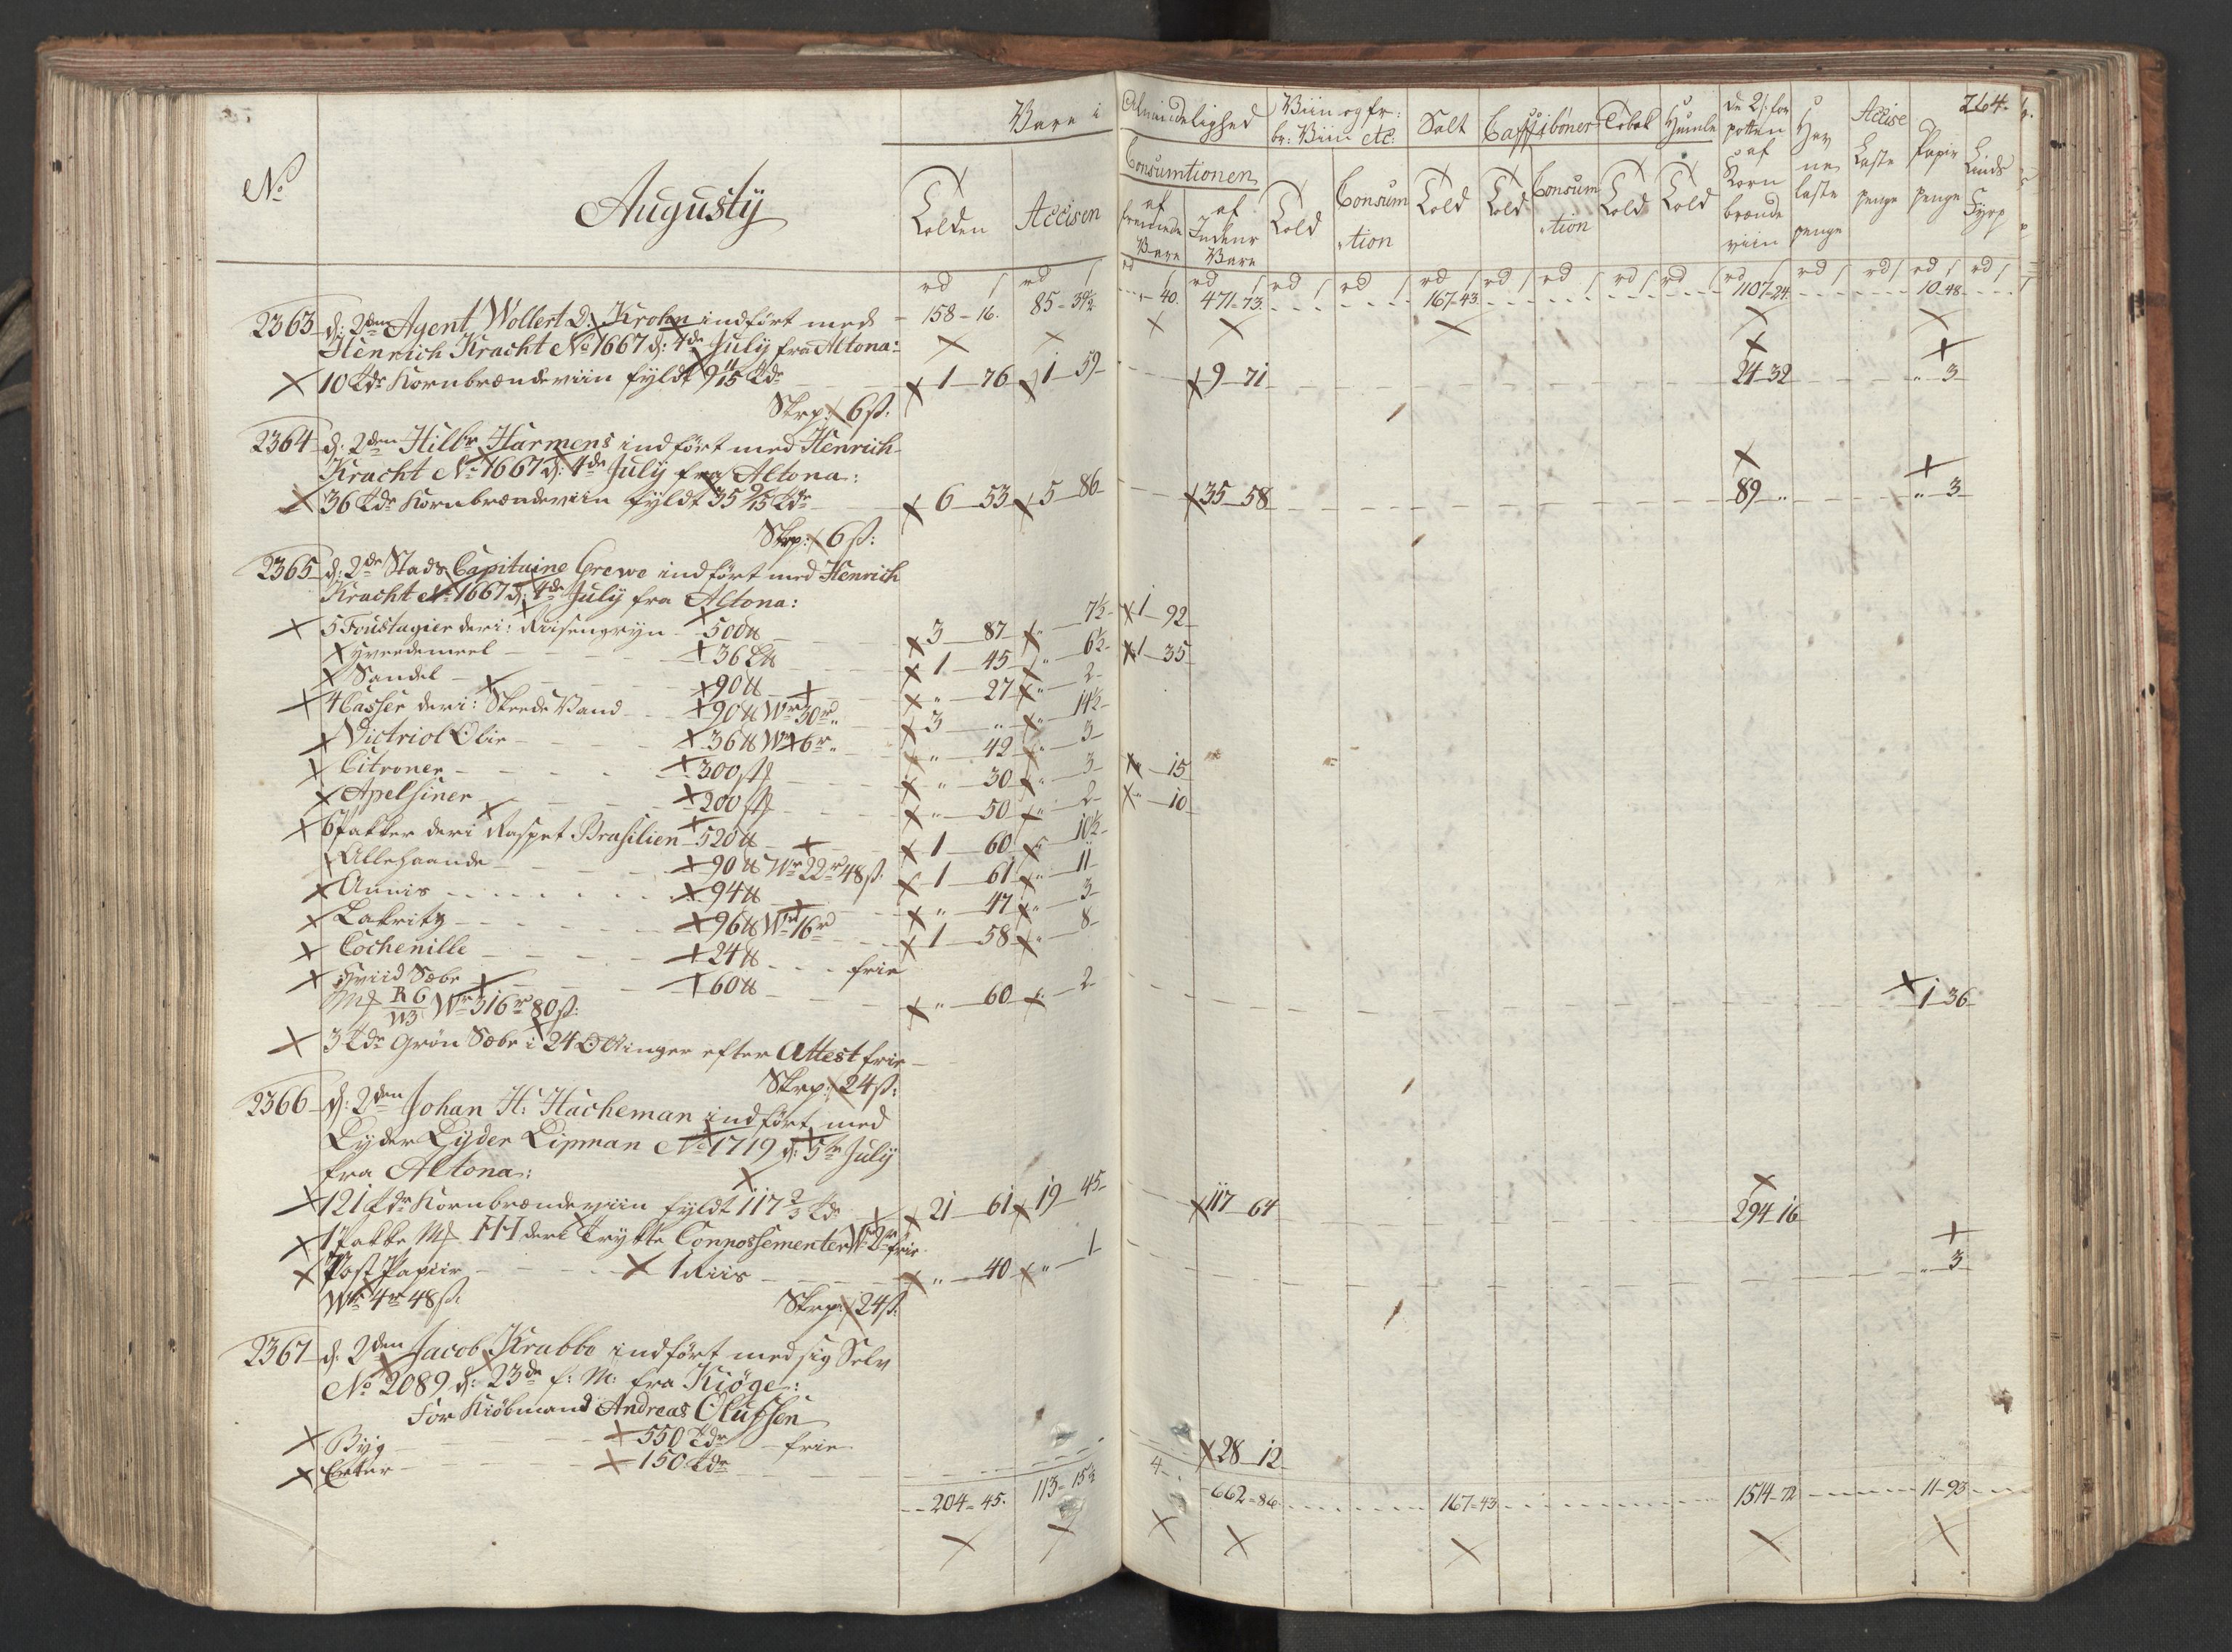 264.
Vare i Almindelighed
Viin og fr: br: Viin etc:
Salt
Caffebönner
Tobak
Humle
de 2 s. for potten af Korn brænde viin
Hav ne laste penge
Accise Laste penge
Papir penge
Linds Fyrp
No
Augusty
Tolden
Accisen
Consumtionen
af fremmede Vare
af Indenr Vare
Told
Consum tion
Told
Told
Consum tion
Told
Told
rd s rd s rd s rd s rd s rd s rd s rd s rd s rd s rd s rd s rd s rd s rd s rd s
158 - 16. 85 - 39½ - 40. 471 - 73. 167 - 43. 1107 - 24. 10 - 48.
2363 d: 2den Agent Wollert D. Krohn indført med
Henrich Kracht No 1667 d: 4de July fra Altona:
10 Tdr Kornbrændeviin fyldt 9 11/15 Tdr 1 76 1 59 9 71 24 32 " 3
Skrp: 6 s.
2364 d: 2den Hilbr Harmens indført med Henrich
Kracht No 1667 d: 4de July fra Altona:
36 Tdr Kornbrændeviin fyldt 35 9/15 Tdr 6 53 5 86 35 58 89 " " 3
Skrp: 6 s:
2365 d: 2de Stads Capitaine Grewe indført med Henrich
Kracht No 1667 d: 4de July fra Altona:
5 Foustagier deri: Riisengryn 500 ℔ 3 87 " 7½ 1 92
Hveedemeel 36 L℔ 1 45 " 6½ 1 35
Sandel 90 ℔ " 27 " 2
4 Casser deri: Skede Vand 90 ℔ Wr 30 rd " 3 " " 14½
Victriol Olie 36 ℔ Wr 6 r " " 42 " 3
Citroner 300 st " 30 " 3 " 15
Apelsiner 200 st " 50 " 2 " 10
6 Pakker deri Raspet Brasilien 520 ℔ 1 60 " 10½
Allehaande 90 ℔ Wr 22 r 48 s. 1 61 " 11
Annis 94 ℔ " 47 " 3
Lakritz 96 ℔ Wr 16 rd 1 58 " 8
Cochenille 24 ℔ frie
Hviid Sæbe 60 ℔ " 60 " 2 1 36
Mk R6 W3 Wr 316 r 80 s:
3 Tdr Grön Sæbe i 24 Ottinger efter Attest frie
Skrp: 24 s:
2366 d: 2den Johan H: Hacheman indført med
Lyder Lyder Lipman No 1719 d: 5te July
fra Altona:
121 Tdr Kornbrændeviin fyldt 117 2/3 Tdr 21 61 19 45 117 64 294 16
1 Pakke Mk HH deri Trykte Connossementer Wr 2 r frie
Post Papiir 1 Riis " 40 " 1 " 3
Wr 4 r 48 s. Skrp: 24 s.
2367 d: 2den Jacob Krabbe indført med sig Selv
No 2089 d: 23de f: M: fra Kiöge:
For Kiöbmand Andreas Olufsen
Byg 550 Tdr frie
Erter 150 Tdr 28 12
204 - 45. 113 - 15½ 4 - . 662 - 86 167 - 43 1514 - 72 11 - 93